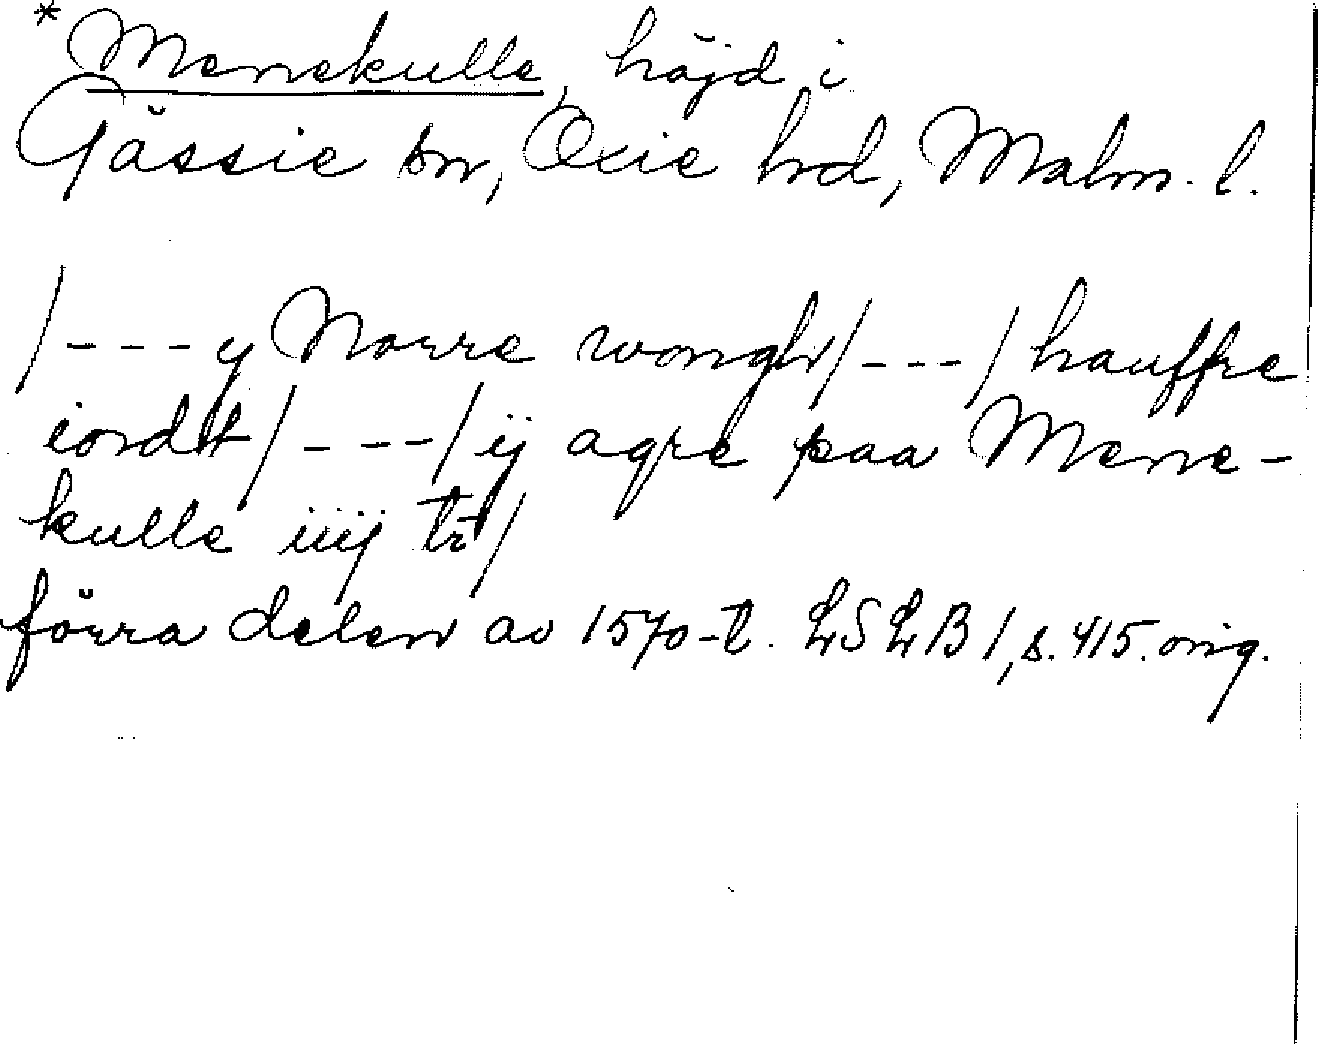 *Menekulle, höjd i
Gässie sn, Oxie hrd, Malm. l.
/---y Norre wongh/---/hauffre
iordt/---/ij agre paa Mene-
kulle iiij tr/
förra delen av 1570-t. LSLB 1, s. 415. orig.